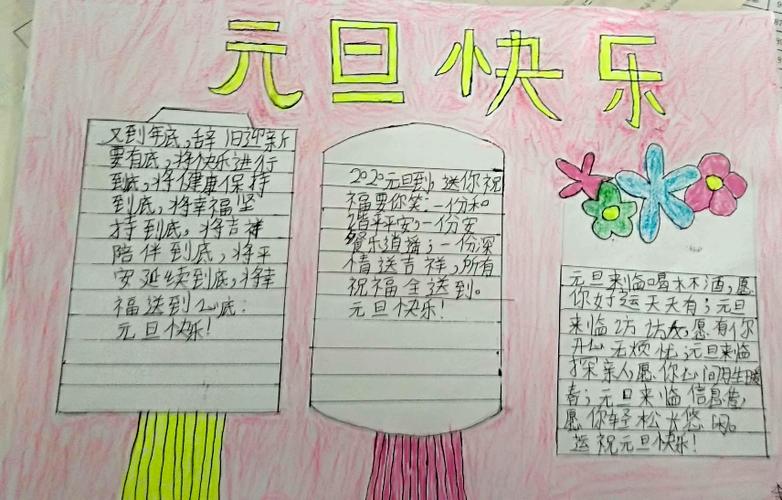 元旦快乐
又到年底,辞旧迎新
要有底,将快乐进行
到底,将健康保持
到底,将幸福坚
持到底,将吉祥
陪伴到底,将平
安延续到底,将幸
福送到心底:
元旦快乐!
2020元旦到,送你祝
福要你笑:一份和
谐平平安,一份安
餐乐逍摇;一份深
情送吉祥,所有
祝福全送到。
元旦快乐!
元旦来临喝木不酒,愿
你好运天天有;元旦
来临访访友,愿有你
开心无烦忧;元旦来临
探亲人,愿你心间
春;元旦来临信息传,
愿你轻松长悠闲。
运祝元旦快乐!